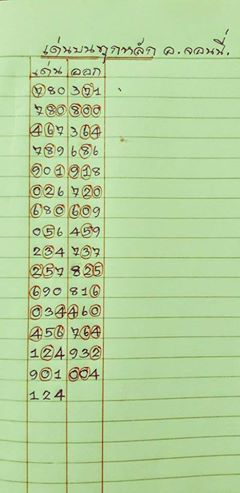 เด่นบนทุกหลัก อ.จอนนี่.
เด่น ออก
780 371
780 800
467 364
789 686
901 918
026 720
680 609
056 459
234 737
257 825
690 816
034 460
456 764
124 932
901 004
124